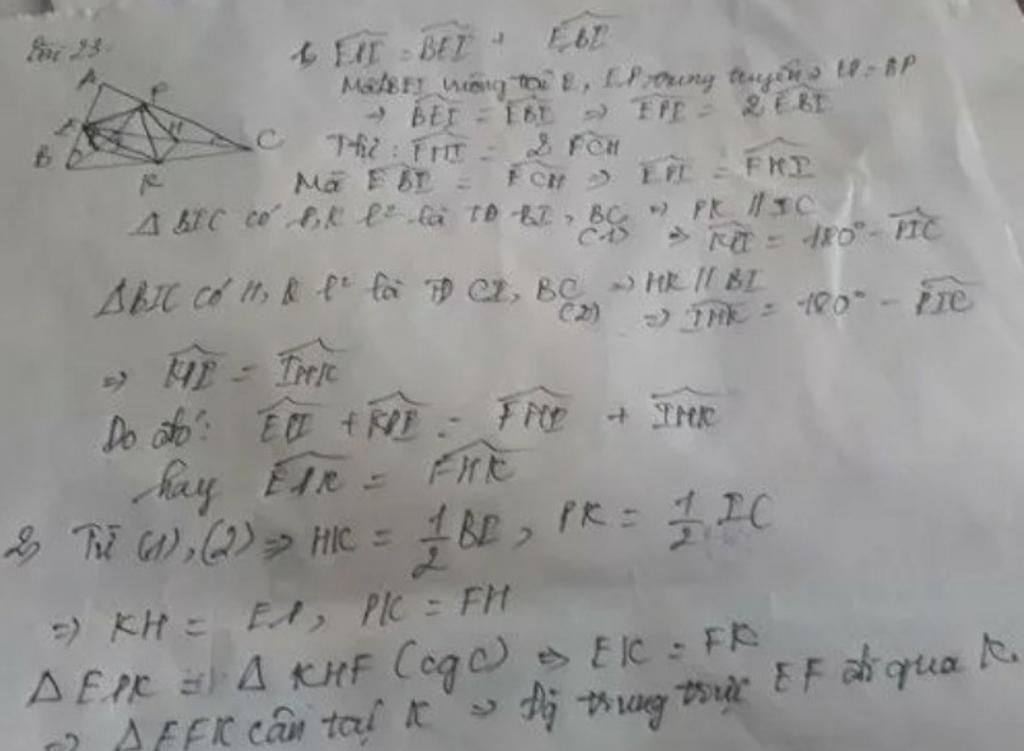 Bài 23
1, EPI = BEI + EBI
Mà ΔBEI vuông tại E, EP trung tuyến ⇒ EP = BP
→ BEI = EBI ⇒ EPI = 2 EBI
FHI = 2 FCH
Mà EBI = FCH ⇒ EPI = FHI
Δ BIC có P, K l² là TĐ BI, BC ⇒ PK // IC
(1) ⇒ KPI = 180° - PIC
ΔBIC có H, K l² là TĐ CI, BC ⇒ HK // BI
(2) ⇒ IHK = 180° - PIC
⇒ KPI = IHK
Do đó: EPI + KPI = FHI + IHK
hay EPK = FHK
2, Từ (1), (2) ⇒ HK = 1/2 BI, PK = 1/2 IC
⇒ KH = EP, PK = FH
Δ EPK = Δ KHF (cgc) ⇒ EK = FK
⇒ Δ EFK cân tại K ⇒ trung trực EF đi qua K.
A
P
H
B
C
K